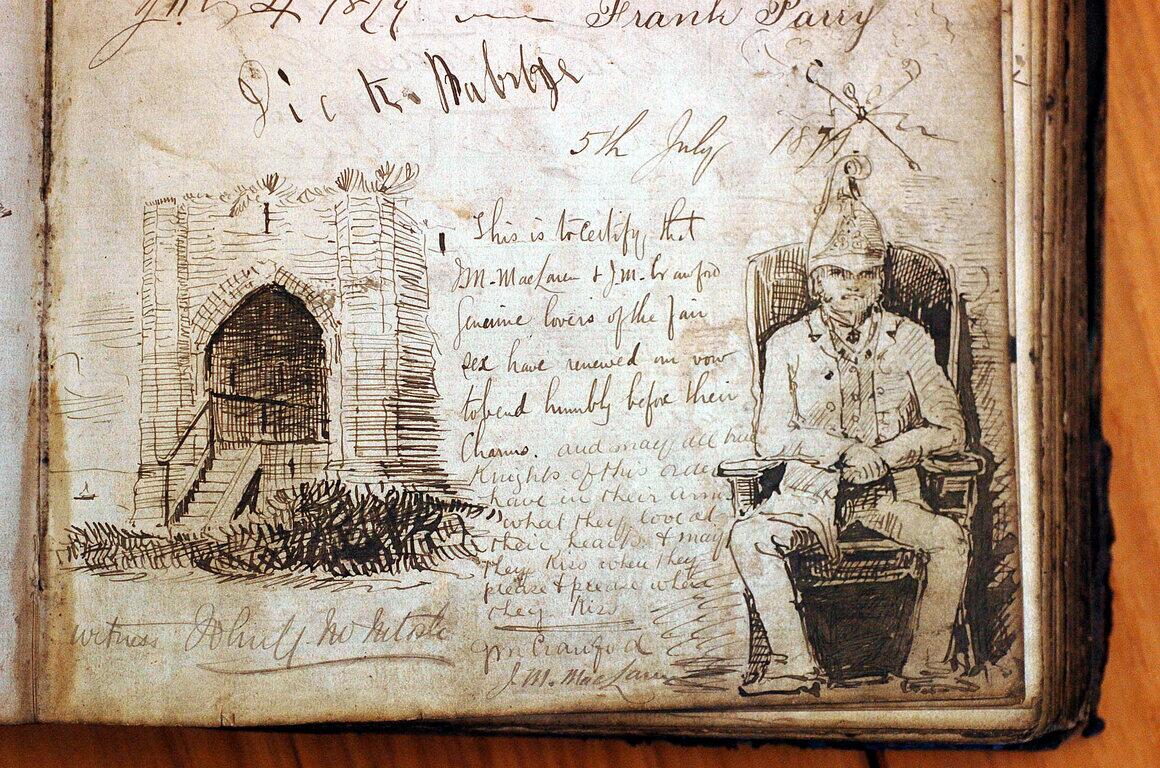 July 4 1879 Frank Parry
5th July 1879
This is to certify that
J.M. MacLaren & J.M. Crawford
Genuine lovers of the fair
sex have renewed our vow
to bend humbly before their
Charms. and may all true
Knights of this order
have in their arms
what they love at
their hearts & may
they kiss when they
please & please when
they kiss
witness John
J M Crawford
J. M. MacLaren